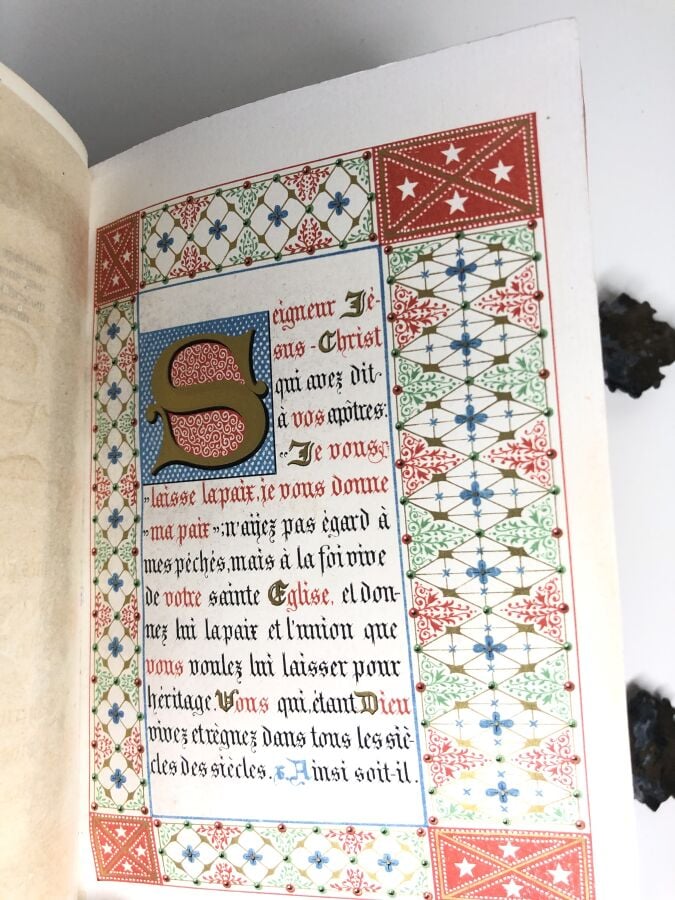 Seigneur Jé-
sus-Christ
qui avez dit
à vos apôtres:
"Je vous
"laisse la paix, je vous donne
"ma paix"; n'ayez pas égard à
mes péchés, mais à la foi vive
de votre sainte Eglise, et don-
nez lui la paix et l'union que
vous voulez lui laisser pour
héritage. Vous qui, étant Dieu
vivez et règnez dans tous les siè-
cles des siècles. R. Ainsi soit-il.